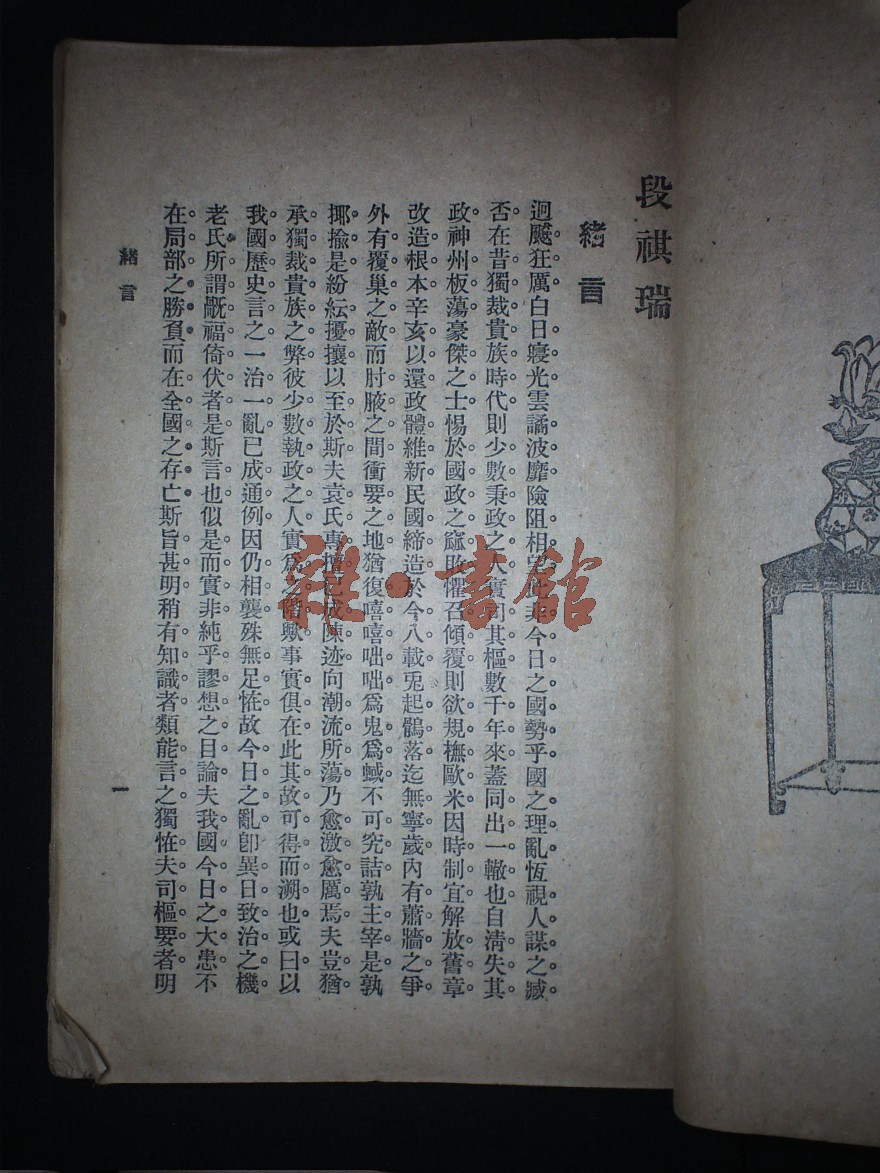 段祺瑞
緒言
迴飇狂厲白日寢光雲譎波靡險阻相望此非今日之國勢乎國之理亂恆視人謀之臧
否在昔獨裁貴族時代則少數秉政之人實司其樞數千年來蓋同出一轍也自清失其
政神州板蕩豪傑之士惕於國政之窳敗懼召傾覆則欲規橅歐米因時制宜解放舊章
改造根本辛亥以還政體維新民國締造於今八載兎起鶻落迄無寧歲內有蕭牆之爭
外有覆巢之敵而肘腋之間衝要之地猶復嘻嘻咄咄爲鬼爲蜮不可究詰孰主宰是孰
揶揄是紛紜擾攘以至於斯夫袁氏專擅已成陳迹向潮流所蕩乃愈激愈厲焉夫豈猶
承獨裁貴族之弊彼少數執政之人實爲之階歟事實俱在此其故可得而溯也或曰以
我國歷史言之一治一亂已成通例因仍相襲殊無足恠故今日之亂卽異日致治之機
老氏所謂旤福倚伏者是斯言也似是而實非純乎謬想之目論夫我國今日之大患不
在局部之勝負而在全國之存亡斯旨甚明稍有知識者類能言之獨恠夫司樞要者明
緒言
一
雜·書館